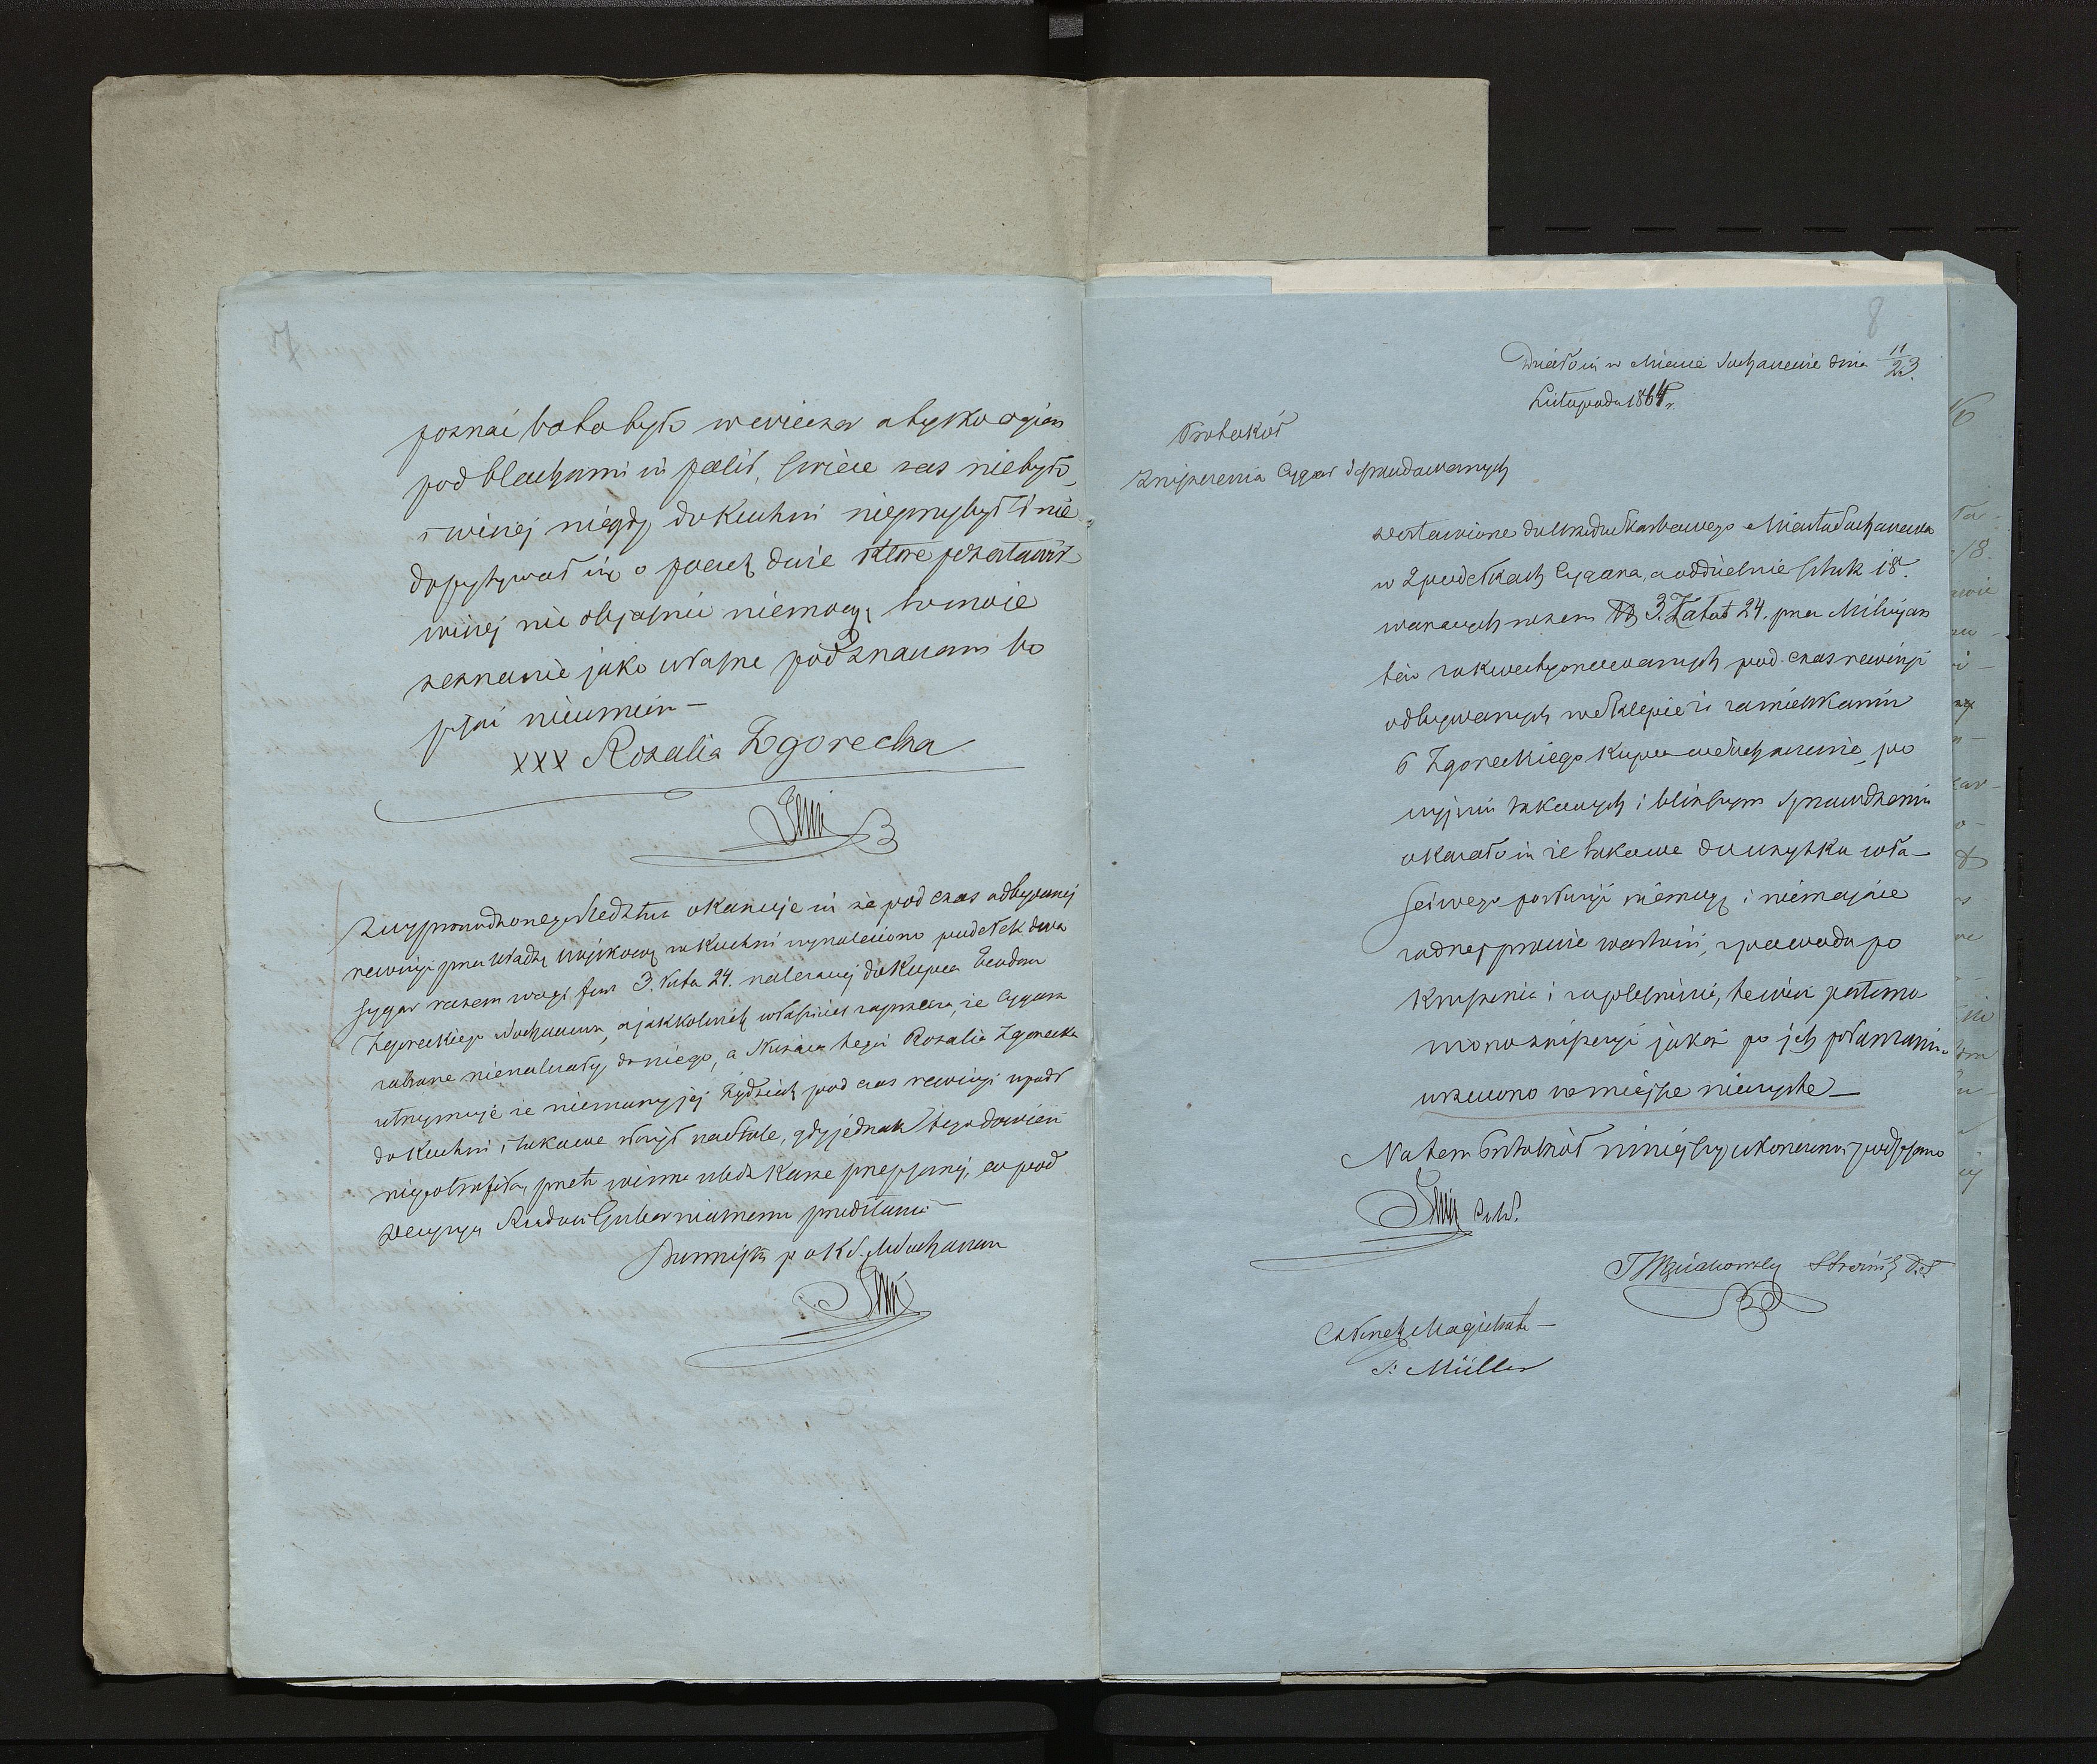 poznać bo to było wewieczor a tylko ogień
pod blachami się palił, świece zas niebyło
i więcej nigdy do Kuchni nieprzybył i nie
dopytywał się o paczki dwie które pozostawił
więcej nic objaśnić niemogę, to moie
zeznanie jako własne podznakami bo
pisać nieumiem—
XXX Rozalia Zgorecka
Z wyprowadzonego śledztwa okazuje się że pod czas odbywanej
rewizyi przez władzę wojskową w kuchni wynaleziono pudełek dwa
Cygar razem wagi fun 3. łuta 24. należącej do Kupca Teodora
Zgoreckiego w Sochaczewie, a jakkolwiek właściciel zaprzecza, że Cygara
zabrane nienależały do niego, a Służąca tegoż Rozalia Zgorecka
utrzymuje że nieznany jej Żydziak pod czas rewizyi wpadł
do Kuchni i takowe złożył na stole, gdy jednak tego dowieść
niepotrafiła, przeto winna uledz karze przepisanej, co pod
decyzyą Rządowi Gubernialnemu przedstawia—
Sochaczewa
8
Działo się w Mieście Sochaczewie dnia 11/23
Listopada 1864 r.
Protokół
Zniszczenia Cygar defraudowanych
Dostawione do Urzędu Skarbowego Miasta Sochaczewa
w 2 pudełkach Cygara, a oddzielnie sztuk 18.
ważących razem ℔ 3. Łutów 24. przez Milujan
tów zakwestyonowanych pod czas rewizyi
odbywanych w Sklepie i zamieszkaniu
Zgoreckiego Kupca w Sochaczewie, po
wyjęciu takowych i bliższym sprawdzeniu
okazało się że takowe do użytku wła-
ściwego posłużyć niemogą i niemające
żadnej prawie wartości, z powodu po
kruszenia i zapleśnienia, te więc postano
wiono zniszczyć jakoż po ich połamaniu
wrzucono w miejsce nieczyste—
Na tem Protokół niniejszy ukończono i podpisano
Strażnik
Członek Magistratu—
Müller